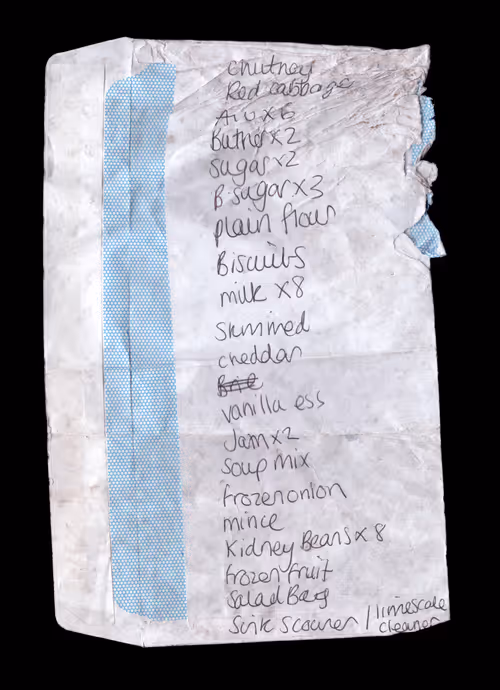 chutney
Red cabbage
x6
Butter x2
Sugar x2
B·sugar x3
plain flour
Biscuits
milk x8
Skimmed
cheddar
Brie
vanilla ess
Jam x2
Soup mix
frozen onion
mince
Kidney Beans x 8
frozen fruit
Salad Bag
Sink scourer / limescale
cleaner